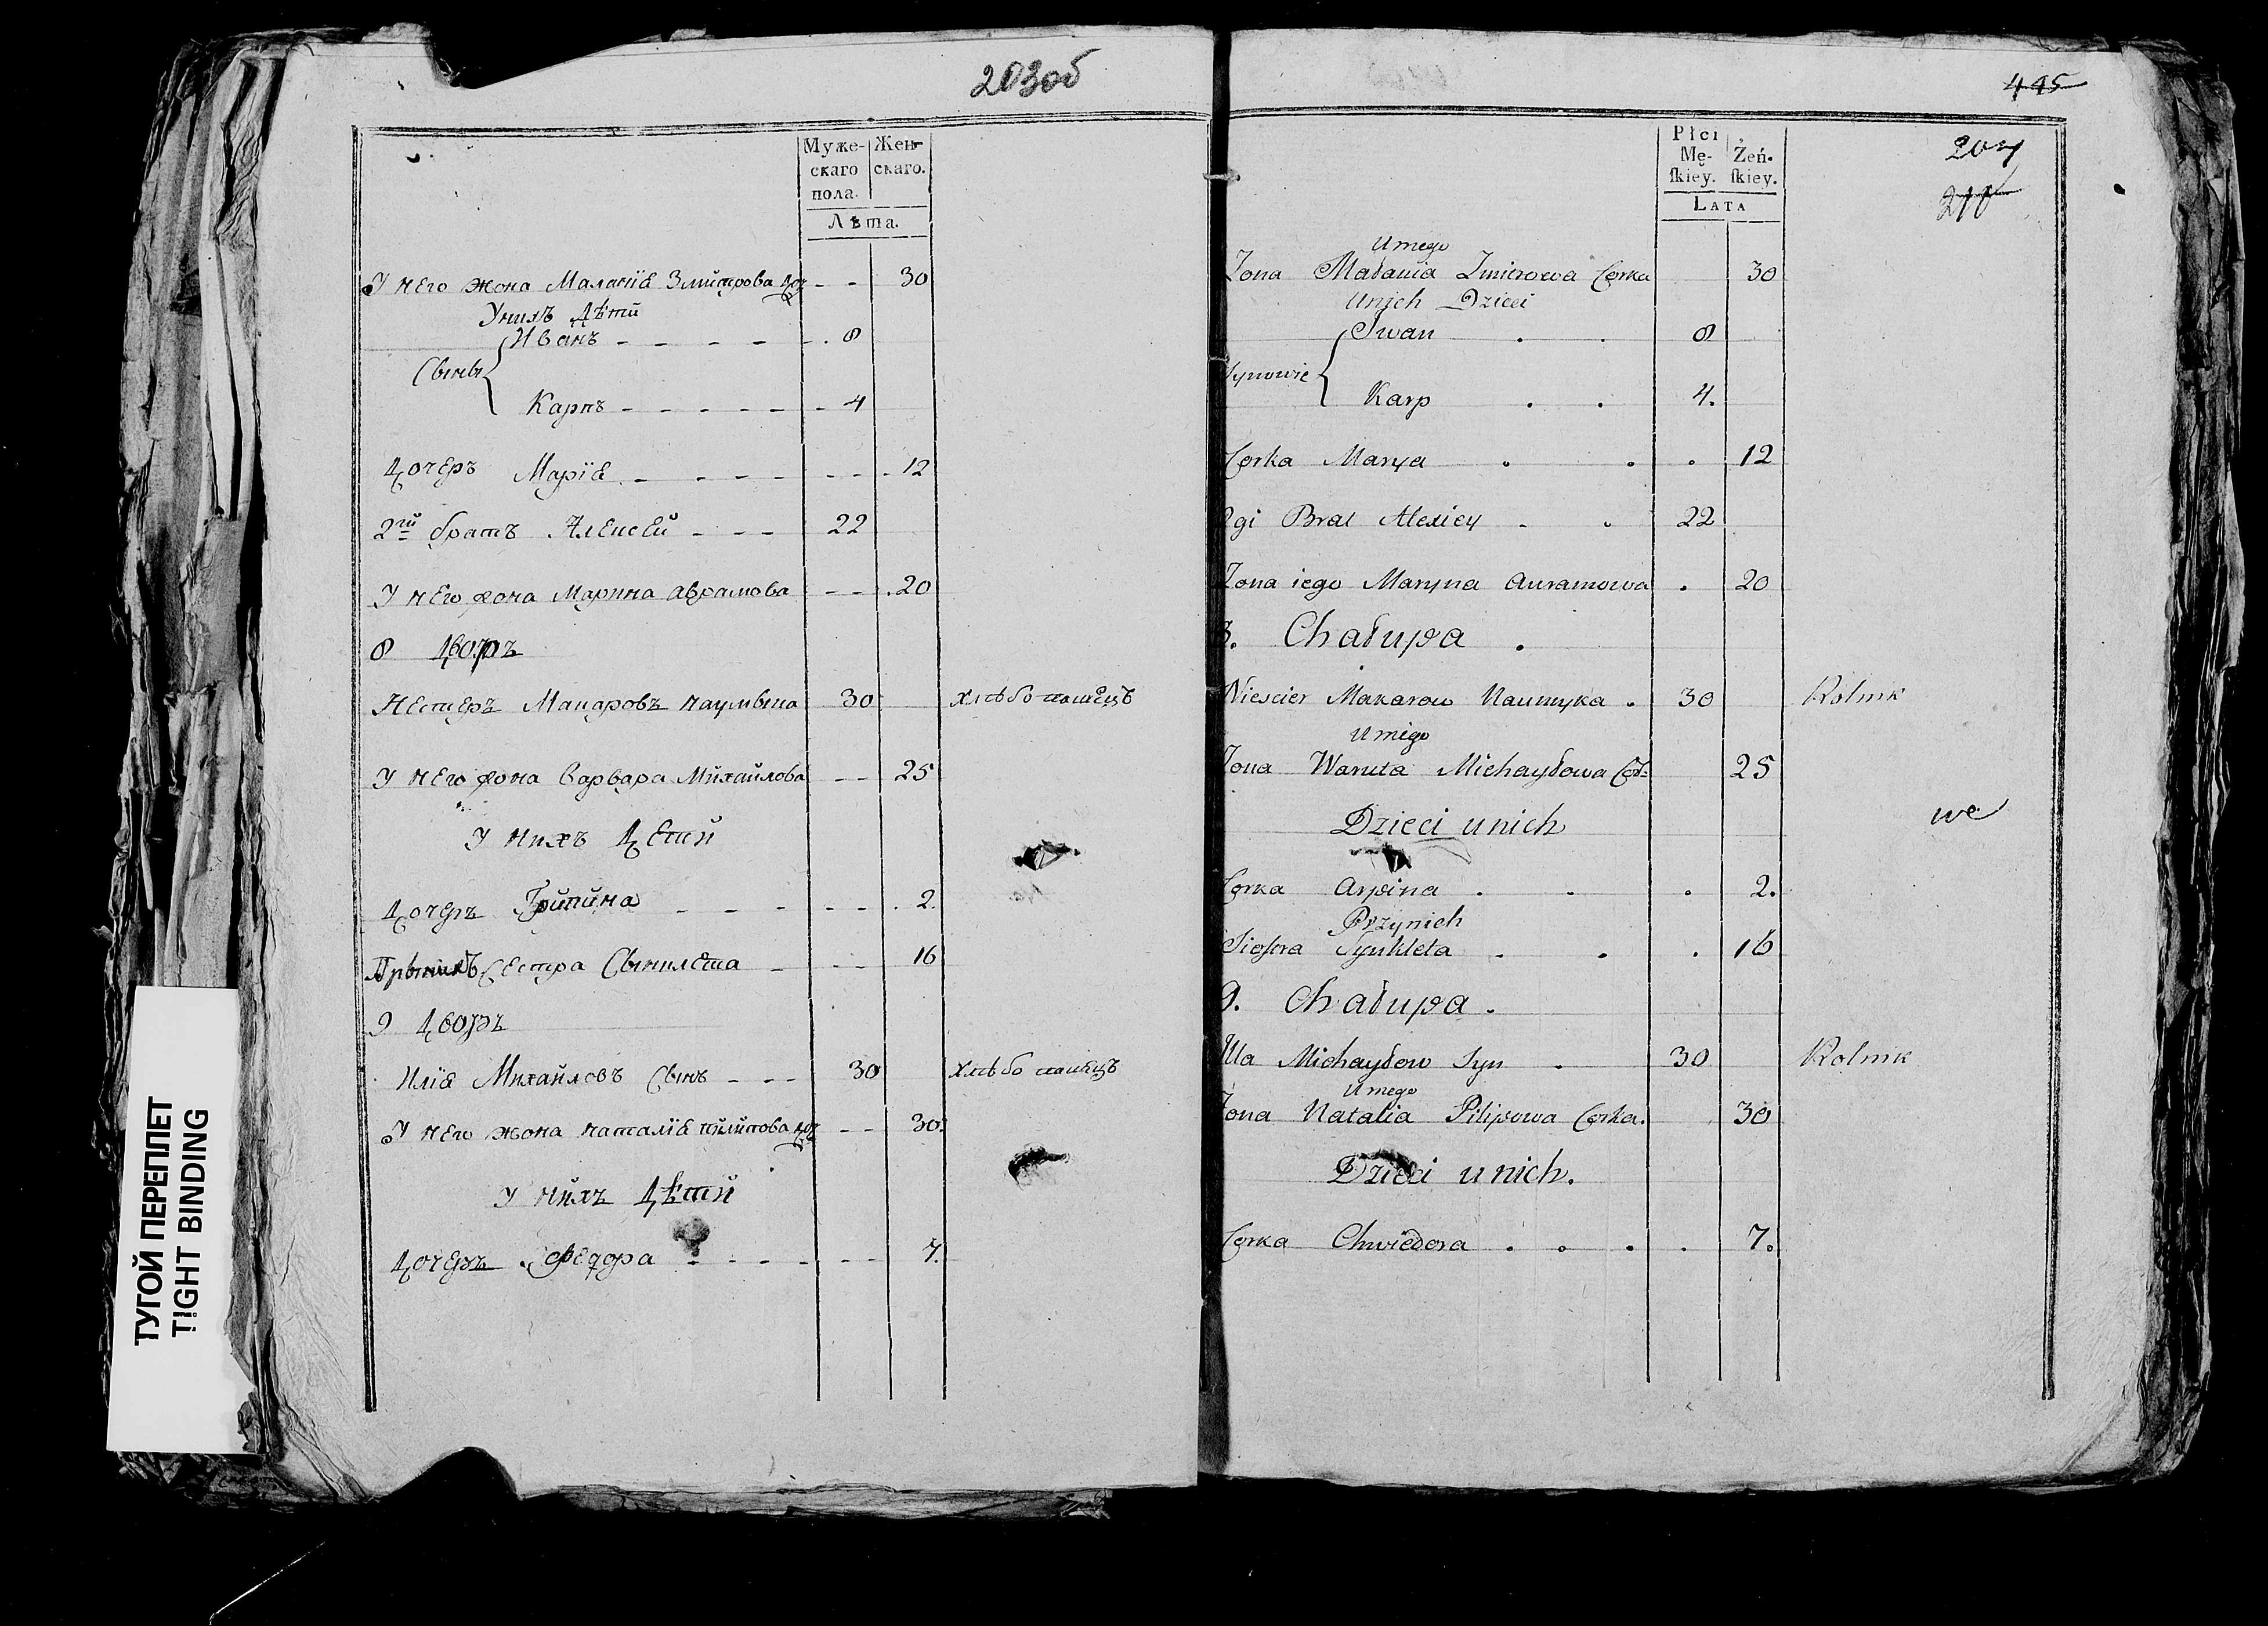 203об
Муже-
скаго
пола.
Жен-
скаго.
Лѣта.
У него жона Маланія Змитрова доч - - 30
У нихъ дѣти
Иванъ - - - - - 8
Сыны
Карпъ - - - - - - 4
дочеръ Марія - - - - - - - 12
2гй братъ Алексей - - - 22
У него жона Марина аврамова - - - 20
8 дворъ
Нестеръ Макаровъ наумыка 30 хлѣбопашецъ
У него жона варвара Михайлова - - 25
У нихъ дети
дочеръ Грипина - - - - - - - 2.
При нихъ Сестра Сынклета - - - 16
9 дворъ
Илія Михайловъ Сынъ - - - 30 хлѣбопашецъ
У него жона наталія пилипова доч - - 30.
У нихъ дѣти
дочеръ Федора - - - - - - 7.
445
204
210
Płci
Mę-
ſkiey.
Żeń-
ſkiey.
LATA
U niego
Zona Małania Zmitrowa Corka 30
U nich Dzieci
Iwan . . 8
Synowie
Karp . . 4.
Corka Marya . . . 12
2gi Brat Alexiey . . 22
Zona iego Maryna Auramowa . 20
8. Chałupa .
Niescier Makarow Naumyka . 30 Rolnik
U niego
Zona Waruta Michayłowa Cor= 25
we
Dzieci u nich
Corka Arpina . . . 2.
Przy nich
Siostra Synkleta . . . 16
9. Chałupa .
Illa Michayłow Syn . 30 Rolnik
U niego
Zona Natalia Pilipowa Corka. 30
Dzieci u nich.
Corka Chwiedora . . . . 7.
ТУГОЙ ПЕРЕПЛЕТ
TIGHT BINDING